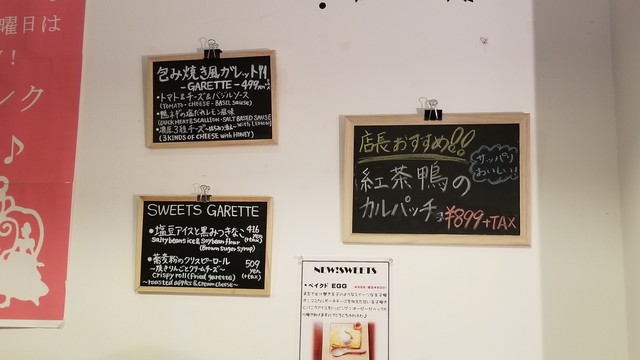 曜日は
!
ンク
♪
包み焼き風ガレット!!
-GARETTE-499
・トマト&チーズ&バジルソース
(TOMATO・CHEESE・BASIL SAUSE)
・鴨ネギの塩だれレモン風味
(DUCK MEAT&SCALLION・SALT BASED SAUSE with LEMON)
・濃厚3種チーズ
(3 KINDS OF CHEESE with HONEY)
SWEETS GARETTE
・塩豆アイスと黒みつきなこ 416
yen
(+tax)
Salty beans ice & Soybean flour
(Brown suger syrup)
・蕎麦粉のクリスピーロール 509
yen
(+tax)
~焼きりんごとクリームチーズ~
Crispy roll (fried garetta)
~roasted apples & cream cheese~
店長おすすめ!!
サッパリ
おいしい!
紅茶鴨の
カルパッチョ ¥899+TAX
NEW!SWEETS
・ベイクド EGG